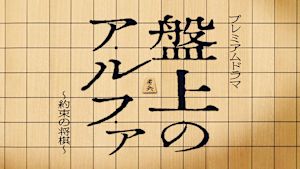 プレミアムドラマ
盤上の
アルファ
～約束の将棋～